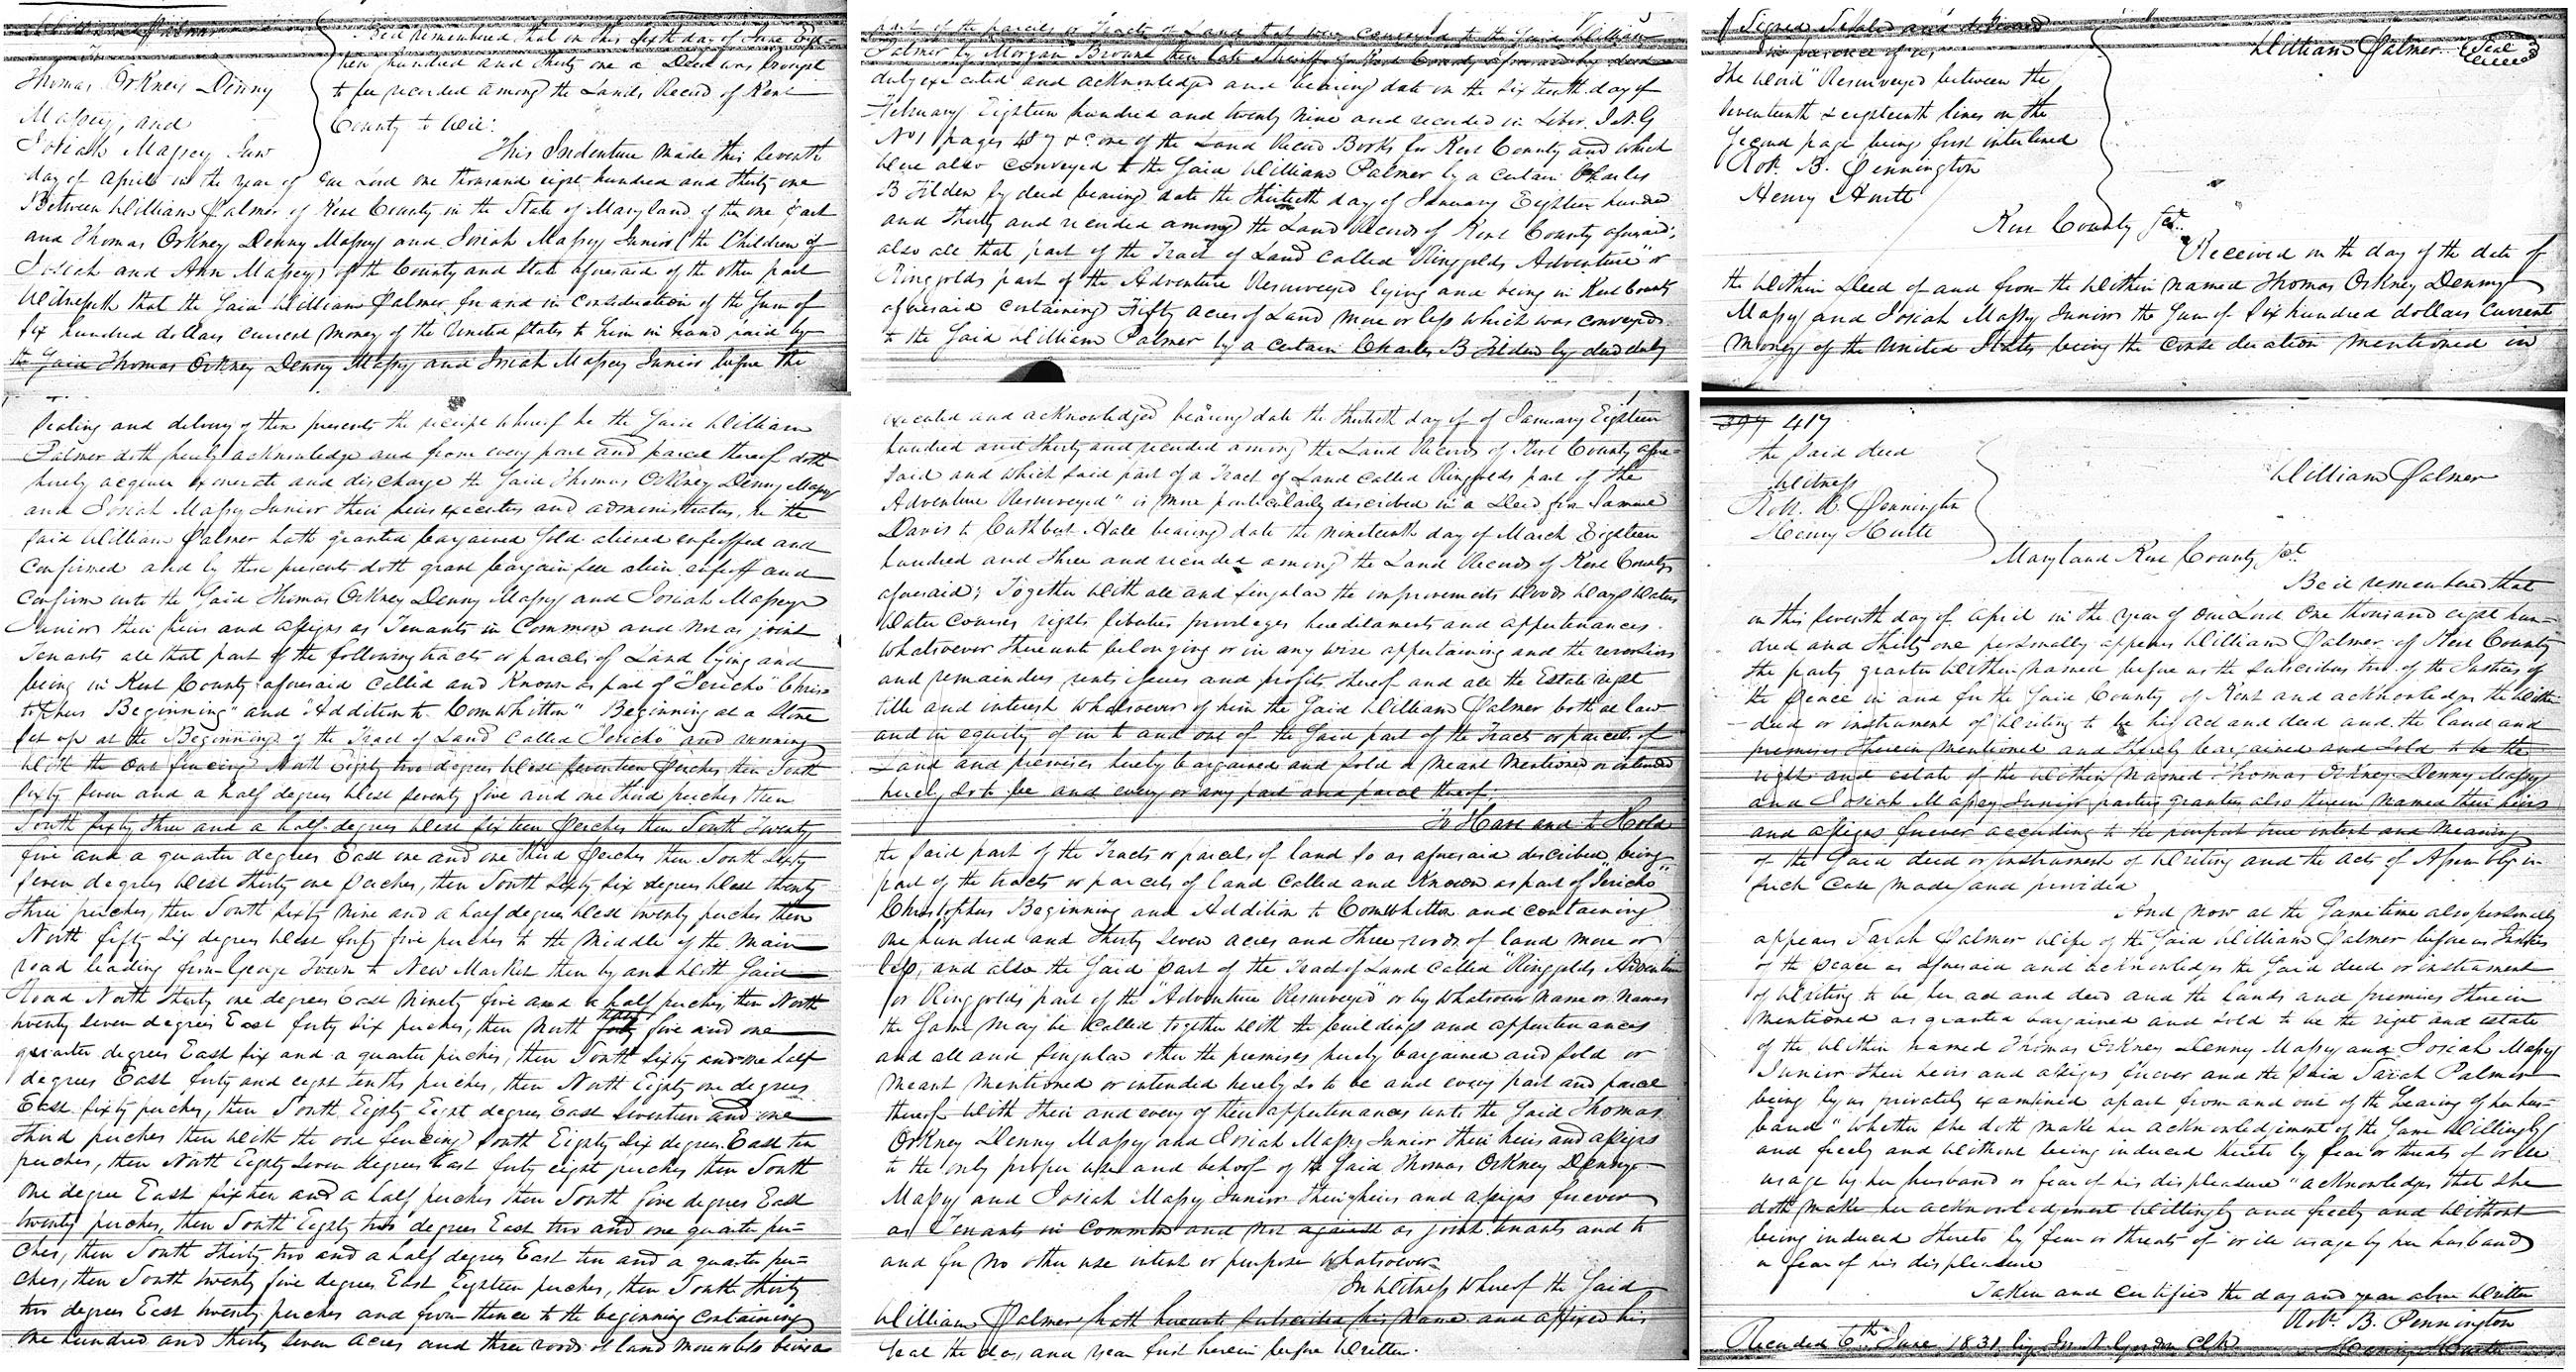 William Palmer
To
Thomas Orkney Denny
Massey, and
Josiah Massey Junr
Be it remembered that on this sixth day of June Eigh-
teen hundred and thirty one a Deed was brought
to be recorded among the Lands Record of Kent
County to Wit:
This Indenture made this seventh
day of April in the year of our Lord one thousand eight hundred and thirty one
Between William Palmer of Kent County in the State of Maryland of the one part
and Thomas Orkney Denny Massey and Josiah Massey Junior (the Children of
Josiah and Ann Massey) of the County and State aforesaid of the other part
Witnesseth that the said William Palmer for and in consideration of the sum of
six hundred dollars current money of the United States to him in hand paid by
the said Thomas Orkney Denny Massey and Josiah Massey Junior before the
sealing and delivery of these presents the receipt whereof he the said William
Palmer doth hereby acknowledge and from every part and parcel thereof doth
hereby acquit exonerate and discharge the said Thomas Orkney Denny Massey
and Josiah Massey Junior their heirs executors and administrators, he the
said William Palmer hath granted bargained sold aliened enfeoffed and
confirmed and by these presents doth grant bargain sell alien enfeoff and
confirm unto the said Thomas Orkney Denny Massey and Josiah Massey
Junior their heirs and assigns as Tenants in Common and not as joint
Tenants all that part of the following tracts or parcels of Land lying and
being in Kent County aforesaid called and known as part of "Jericho" Chris-
tophers Beginning" and "Addition to Cornwhitton" Beginning at a stone
set up at the Beginning of the Tract of Land called Jericho and running
with the out fencing North Eighty two degrees West seventeen perches then South
sixty seven and a half degrees West seventy five and one third perches then
South sixty three and a half degrees West sixteen perches then South Twenty
five and a quarter degrees East one and one third perches then South sixty
seven degrees West thirty one perches, then South sixty six degrees West twenty
three perches, then South sixty nine and a half degrees West twenty perches then
North fifty six degrees West forty five perches to the middle of the main
road leading from George Town to New Market then by and with said
Road North thirty one degrees East ninety five and a half perches, then North
twenty seven degrees East forty six perches, then North forty five and one
quarter degrees East six and a quarter perches, then South sixty and one half
degrees East forty and eight tenths perches, then North Eighty one degrees
East sixty perches, then South Eighty Eight degrees East seventeen and one
third perches then with the out fencing South Eighty six degrees East ten
perches, then North Eighty seven degrees East forty eight perches then South
one degree East sixteen and a half perches then South five degrees East
twenty perches, then South Eighty two degrees East two and one quarter per-
ches, then South thirty two and a half degrees East ten and a quarter per-
ches, then South twenty five degrees East Eighteen perches, then South thirty
two degrees East twenty perches and from thence to the beginning containing
one hundred and thirty seven acres and three roods of land more or less being a
part of the parcels or Tracts of Land that were conveyed to the said William
Palmer by Morgan Browne then late Sheriff of Kent County aforesaid by deed
duly executed and acknowledged and bearing date on the sixteenth day of
February Eighteen hundred and twenty nine and recorded in Liber J.N.G
No 1 pages 487 &c one of the Land Record Books for Kent County and which
were also conveyed to the said William Palmer by a certain Charles
B Tilden by deed bearing date the thirtieth day of January Eighteen hundred
and thirty and recorded among the Land Records of Kent County aforesaid;
also all that part of the Tract of Land called "Ringgolds Adventure" or
Ringgolds part of the Adventure Resurveyed lying and being in Kent County
aforesaid containing Fifty acres of Land more or less which was conveyed
to the said William Palmer by a certain Charles B Tilden by deed duly
executed and acknowledged bearing date the thirtieth day of of January Eighteen
hundred and thirty and recorded among the Land Records of Kent County afore-
said and which said part of a Tract of Land called Ringgolds part of the
Adventure Resurveyed" is more particularly described in a Deed from Samuel
Davis to Cuthbert Hall bearing date the nineteenth day of March Eighteen
hundred and three and recorded among the Land Records of Kent County
aforesaid; Together with all and singular the improvements Woods Ways Waters
Water Courses rights liberties priviledges hereditaments and appurtenances
whatsoever thereunto belonging or in any wise appertaining and the reversions
and remainders rents issues and profits thereof and all the Estate right
title and interest whatsoever of him the said William Palmer both at law
and in equity of in to and out of the said part of the Tracts or parcels of
Land and premises hereby bargained and sold or meant mentioned or intended
hereby so to be and every or any part and parcel thereof.
To Have and to Hold
the said part of the Tracts or parcels of land so as aforesaid described, being
part of the tracts or parcels of land called and known as part of Jericho"
Christophers Beginning and Addition to Cornwhitton and containing
one hundred and thirty seven acres and three roods of land more or
less, and also the said part of the Tract of Land called "Ringgolds Adventure
or Ringgolds part of the "Adventure Resurveyed" or by whatsoever name or names
the same may be called together with the buildings and appurtenances
and all and singular other the premises hereby bargained and sold or
meant mentioned or intended hereby so to be and every part and parcel
thereof with their and every of their appurtenances unto the said Thomas
Orkney Denny Massey and Josiah Massey Junior their heirs and assigns
to the only proper use and behoof of the said Thomas Orkney Denny
Massey and Josiah Massey Junior their heirs and assigns forever
as Tenants in common and not against as joint tenants and to
and for no other use intent or purpose whatsoever.
In Witness Whereof the said
William Palmer hath hereunto subscribed his name and affixed his
seal the day and year first herein before written.
Signed Sealed and delivered
in presence of us
The word "Resurveyed between the
seventeenth & eighteenth lines on the
second page being first interlined
Rob. B. Pennington
Henry Hurtt
William Palmer Seal
Kent County Sct.
Received on the day of the date of
the within Deed of and from the within named Thomas Orkney Denny
Massey and Josiah Massey Junior the sum of six hundred dollars current
money of the United States being the consideration mentioned in
399 417
the said deed
Witness
Rob. B. Pennington
Henry Hurtt
William Palmer
Maryland Kent County Sct
Be it remembered that
on this seventh day of April in the year of our Lord one thousand eight hun-
dred and thirty one personally appears William Palmer of Kent County
the party grantor within named before us the subscribers two of the Justices of
the peace in and for the said County of Kent and acknowledges the within
deed or instrument of writing to be his act and deed and the land and
premises therein mentioned and thereby bargained and sold to be the
right and estate of the within named Thomas Orkney Denny Massey
and Josiah Massey Junior parties grantees also therein named their heirs
and assigns forever according to the purport true intent and meaning
of the said deed or instrument of writing and the acts of Assembly in
such case made and provided
And now at the same time also personally
appears Sarah Palmer wife of the said William Palmer before us Justices
of the peace as aforesaid and acknowledges the said deed or instrument
of writing to be her act and deed and the lands and premises therein
mentioned as granted bargained and sold to be the right and estate
of the within named Thomas Orkney Denny Massey and Josiah Massey
Junior their heirs and assigns forever and the said Sarah Palmer
being by us privately examined apart from and out of the hearing of her hus-
band "whether she doth make her acknowledgement of the same willingly
and freely and without being induced thereto by fear or threats of or ill
usage by her husband or fear of his displeasure" acknowledges that she
doth make her acknowledgement willingly and freely and without
being induced thereto by fear or threats of or ill usage by her husband
or fear of his displeasure
Taken and certified the day and year above written
Rob. B. Pennington
Henry Hurtt
Recorded 6th June 1831 by Jas. N. Gordon Clk